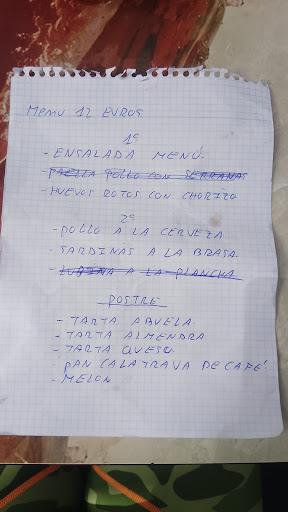 Menu 12 EUROS
1º
- ENSALADA MENÚ.
- PAELLA POLLO CON SERRANAS
- HUEVOS ROTOS CON CHORIZO
2º
- POLLO A LA CERVEZA
- SARDINAS A LA BRASA.
- LUBINA A LA PLANCHA
POSTRE
- TARTA ABUELA.
- TARTA ALMENDRA
- TARTA QUESO.
PAN CALATRAVA DE CAFÉ
- MELON